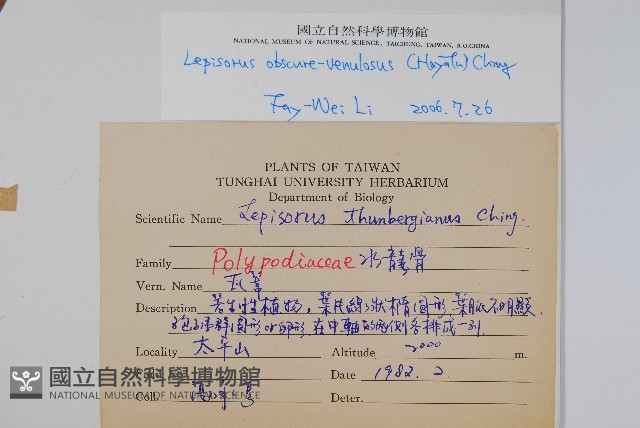 國立自然科學博物館
NATIONAL MUSEUM OF NATURAL SCIENCE, TAICHUNG, TAIWAN, R.O.CHINA
Lepisorus obscure-venulosus (Hayata) Ching
Fay-Wei Li 2006.7.26
PLANTS OF TAIWAN
TUNGHAI UNIVERSITY HERBARIUM
Department of Biology
Scientific Name Lepisorus thunbergianus Ching.
Family Polypodiaceae 水龍骨
Vern. Name 瓦葦
Description 著生性植物, 葉片線狀橢圓形 葉脈不明顯.
孢子囊群圓形or卵形 在中軸的兩側各排成一列.
Locality 太平山 Altitude 2000 m.
Date 1982. 2
Coll. Deter.
國立自然科學博物館
NATIONAL MUSEUM OF NATURAL SCIENCE